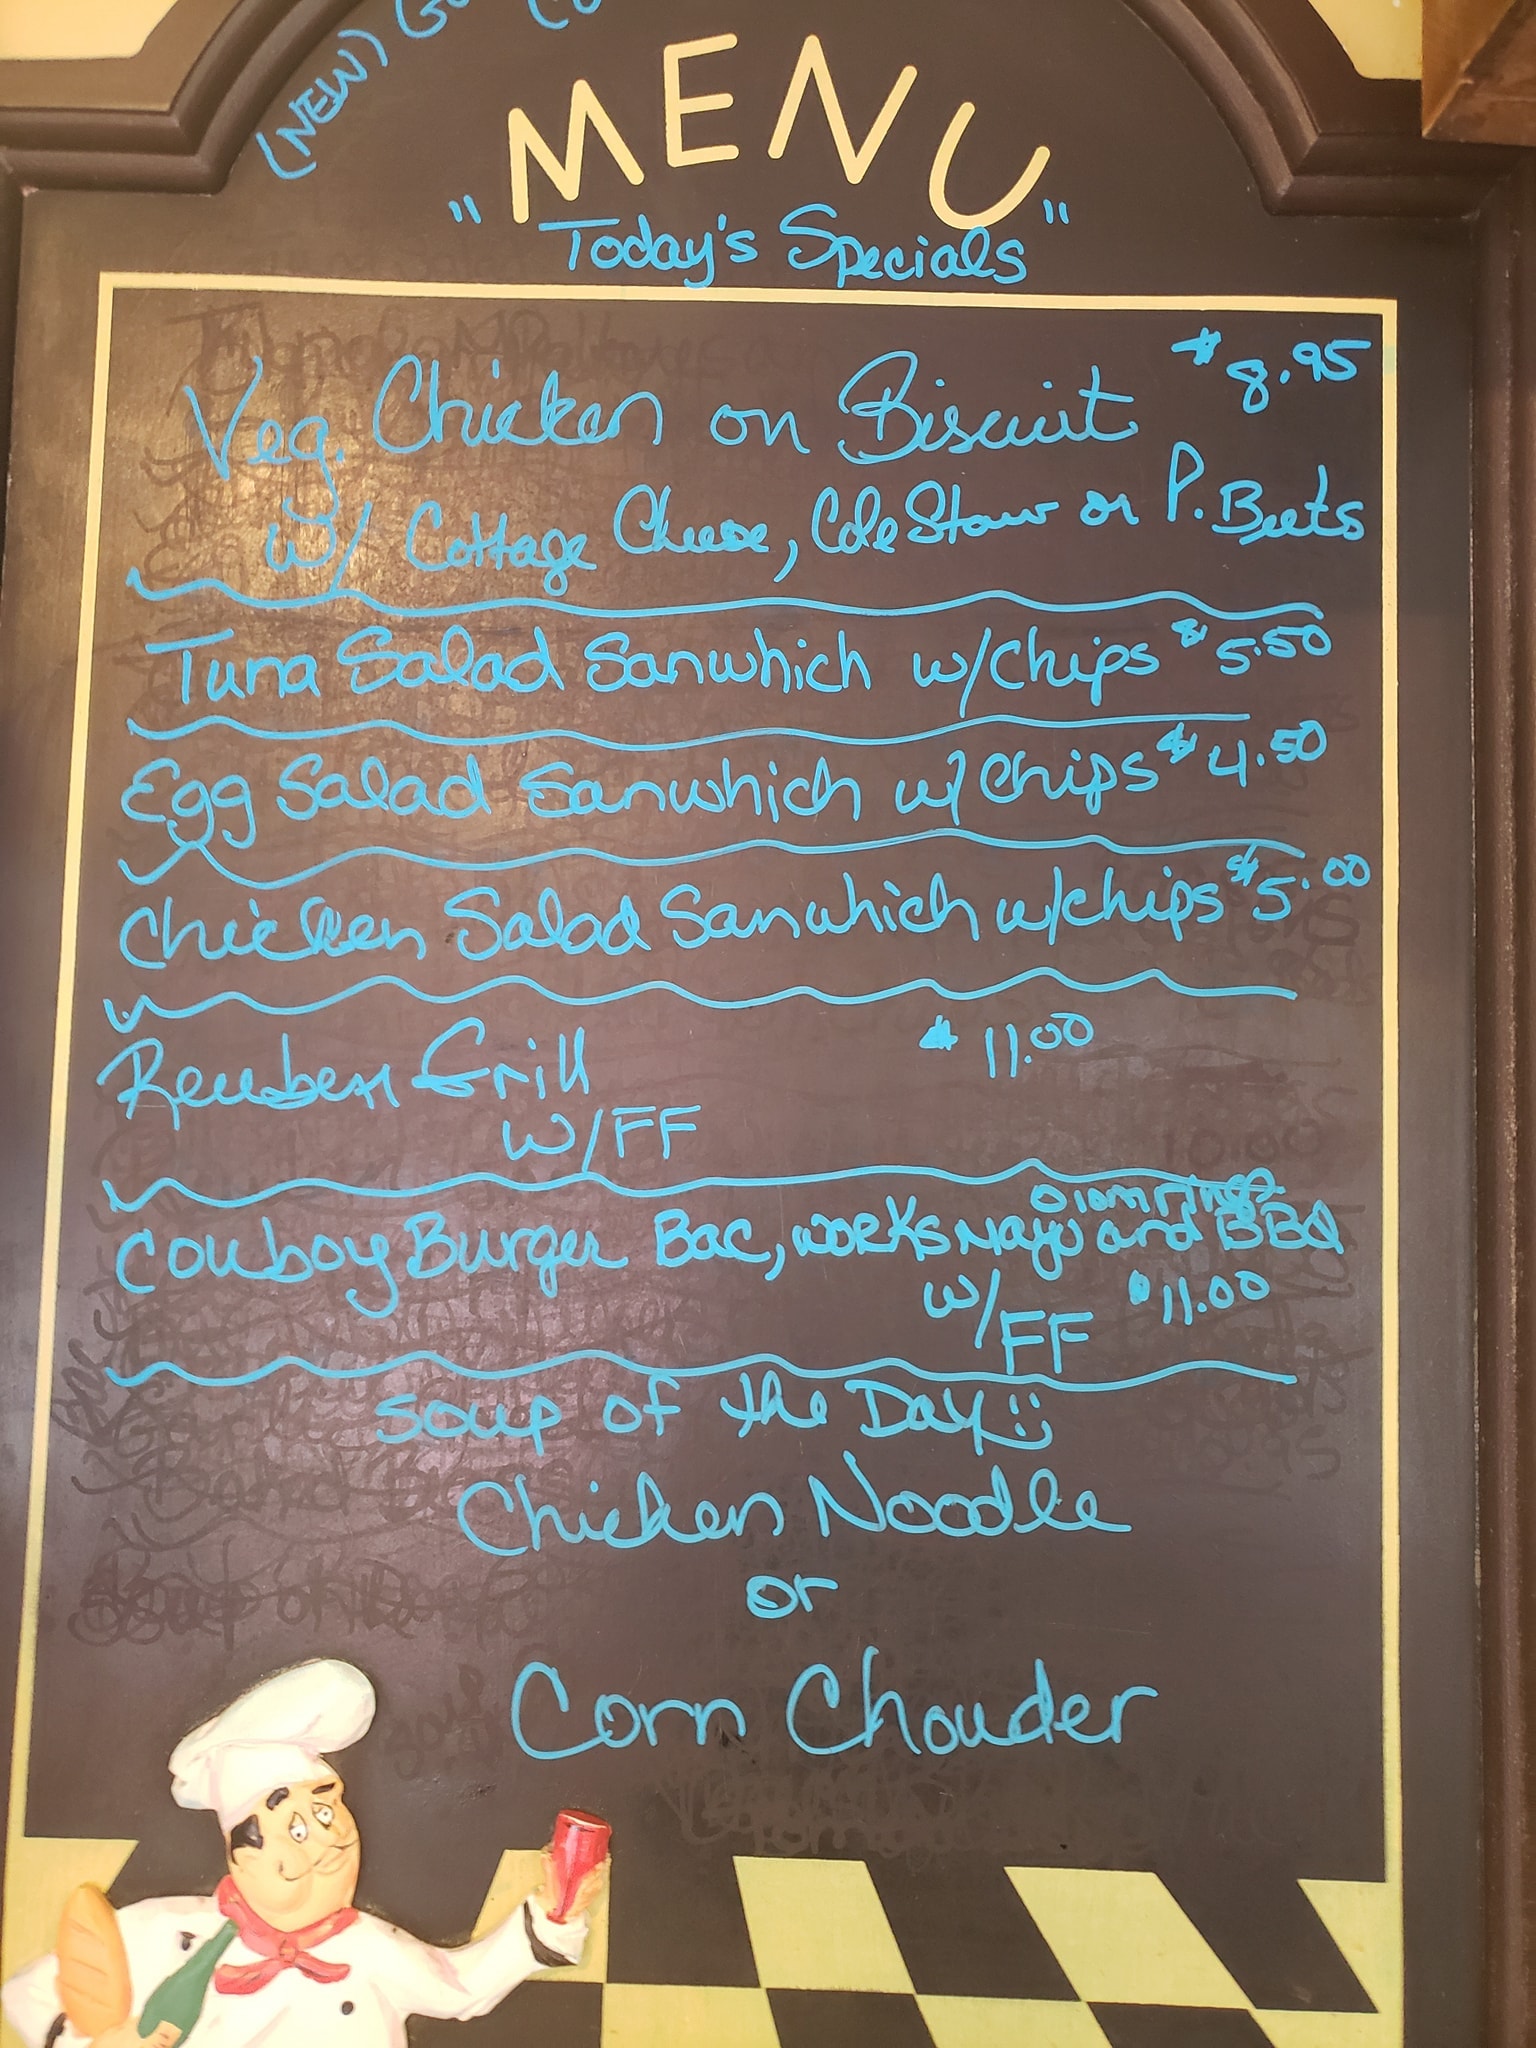 (NEW)
MENU
"Today's Specials"
Veg. Chicken on Biscuit $8.95
w/ Cottage Cheese, Cole Slaw or P. Beets
Tuna Salad Sanwhich w/chips $5.50
Egg Salad Sanwhich w/chips $4.50
Chicken Salad Sanwhich w/chips $5.00
Reuben Grill $11.00
w/FF
Onion rings
Cowboy Burger Bac, works Mayo and BBQ
w/FF $11.00
Soup of the Day
Chicken Noodle
or
Corn Chouder